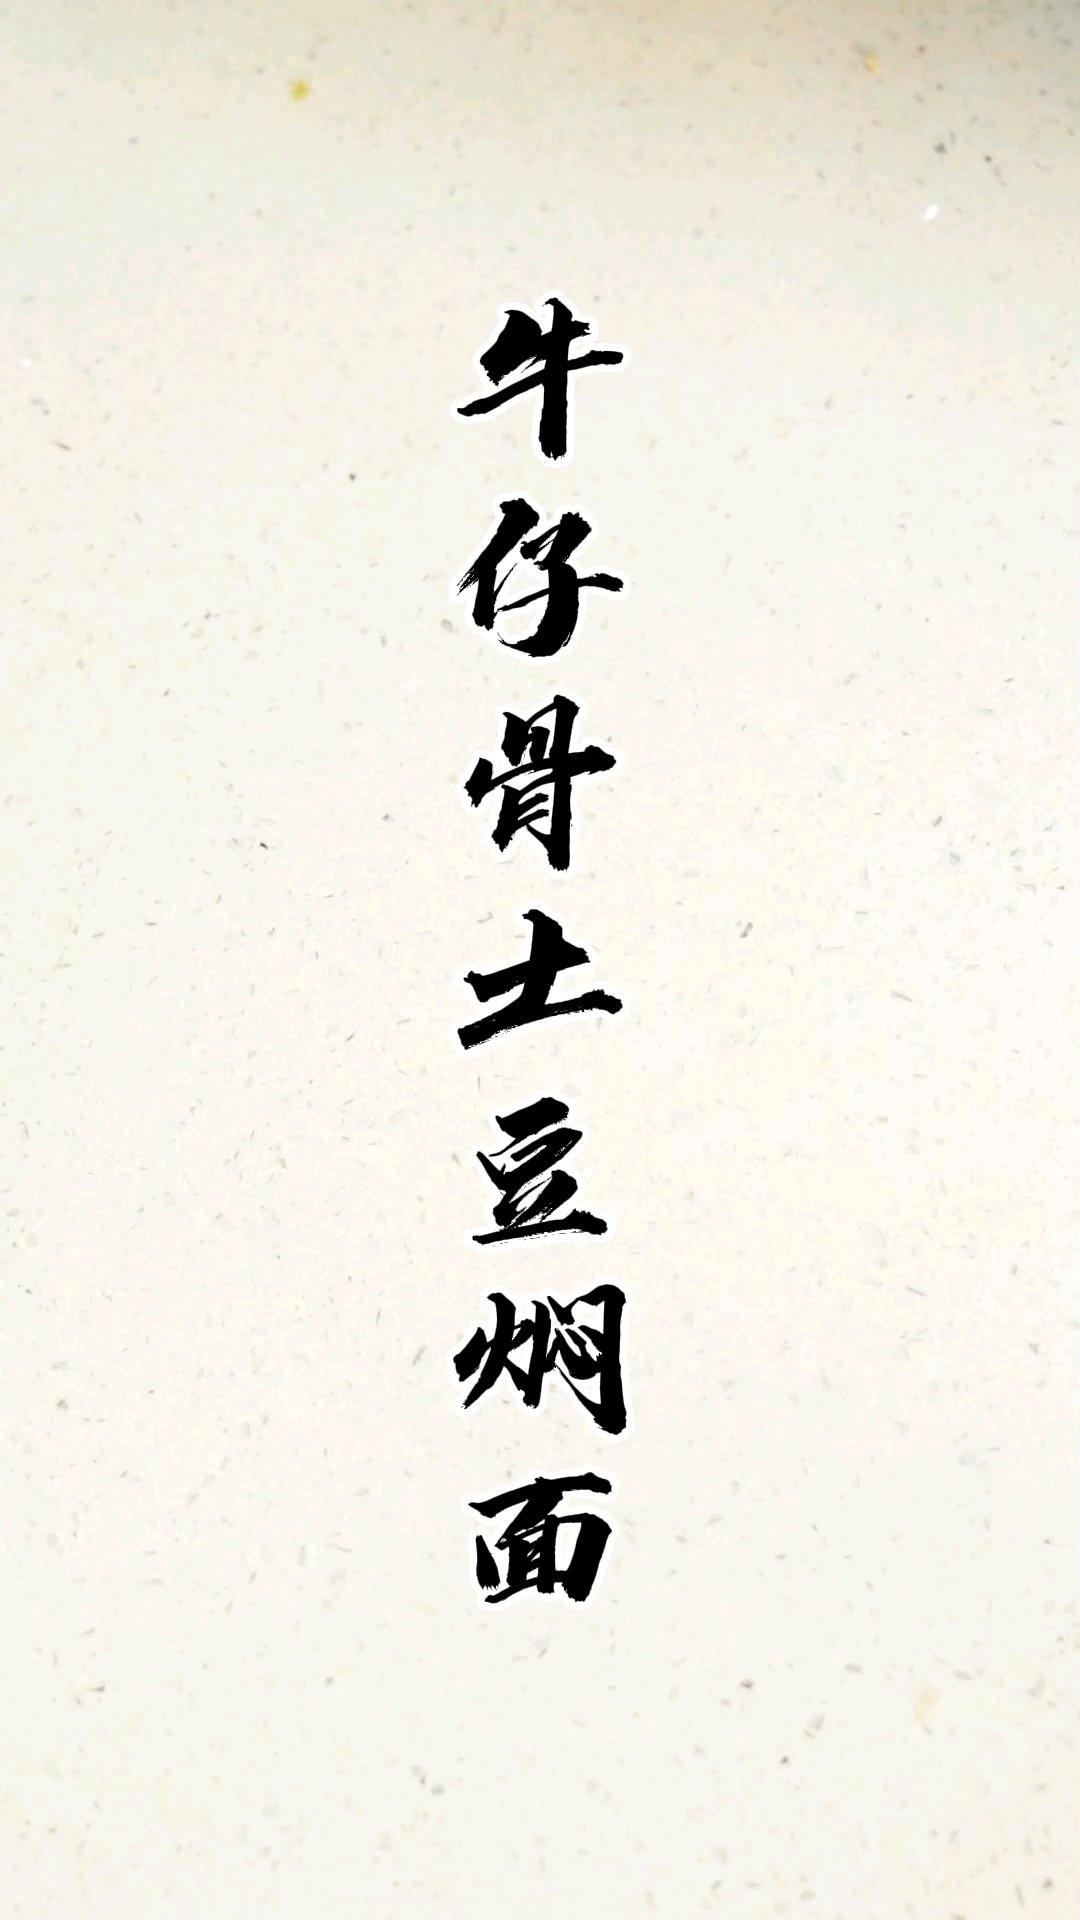 牛仔骨土豆焖面